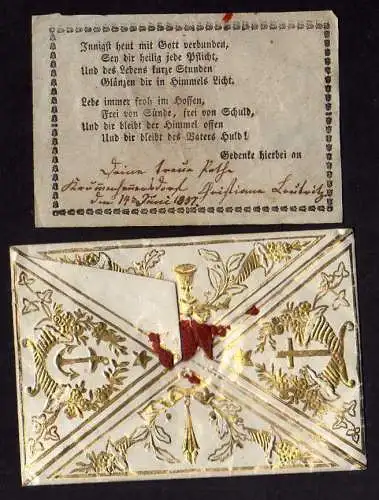 Innigst heut mit Gott verbunden,
Sey dir heilig jede Pflicht,
Und des Lebens kurze Stunden
Glänzen dir in Himmels Licht.
Lebe immer froh im Hoffen,
Frei von Sünde, frei von Schuld,
Und dir bleibt der Himmel offen
Und dir bleibt des Vaters Huld!
Gedenke hierbei an
Deine treue Pathe
Christiane
den 19 Juni 1837.